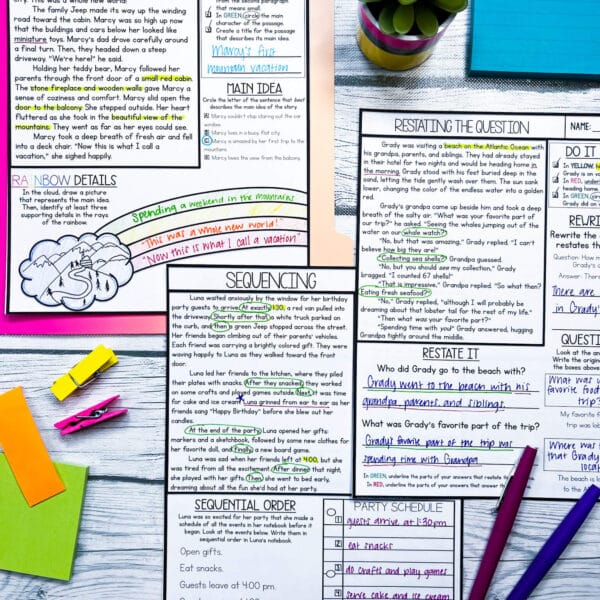 cozy streets. This was a whole new world!
The family Jeep made its way up the winding
road toward the cabin. Marcy was so high up now
that the buildings and cars below her looked like
miniature toys. Marcy's dad drove carefully around
a final turn. Then, they headed down a steep
driveway. "We're here!" he said.
Holding her teddy bear, Marcy followed her
parents through the front door of a small red cabin.
The stone fireplace and wooden walls gave Marcy a
sense of coziness and comfort. Marcy slid open the
door to the balcony. She stepped outside. Her heart
fluttered as she took in the beautiful view of the
mountains. They went as far as her eyes could see.
Marcy took a deep breath of fresh air and fell
into a deck chair. "Now this is what I call a
vacation," she sighed happily.
that means small.
In GREEN, circle the main
character of the passage.
Create a title for the passage
that describes its main idea.
Marcy's first
mountain vacation
MAIN IDEA
Circle the letter of the sentence that best
describes the main idea of the story.
Marcy couldn't stop staring out the car
window.
Marcy lives in a busy, flat city.
Marcy is amazed by her first trip to the
mountains.
Marcy loves the view from the balcony.
RAINBOW DETAILS
In the cloud, draw a picture
that represents the main idea.
Then, identify at least three
supporting details in the rays
of the rainbow.
Spending a weekend in the mountains
"This was a whole new world!"
"Now this is what I call a vacation"
RESTATING THE QUESTION
NAME:
Grady was visiting a beach on the Atlantic Ocean with
his grandpa, parents, and siblings. They had already stayed
in their hotel for two nights and would be heading home
in the morning. Grady stood with his feet buried deep in the
sand, letting the tide gently wash over them. The sun sank
lower, changing the color of the endless water into a golden
red.
Grady's grandpa came up beside him and took a deep
breath of the salty air. "What was your favorite part of
our trip?" he asked. "Seeing the whales jumping out of the
water on our whale watch?"
"No, but that was amazing," Grady replied. "I can't
believe how big they are!"
"Collecting sea shells?" Grandpa guessed.
"No, but you should see my collection," Grady
bragged. "I counted 67 shells!"
"That is impressive," Grandpa replied. "So what then?
Eating fresh seafood?"
"No," Grady replied, "although I will probably be
dreaming about that lobster tail for the rest of my life."
"Then what was your favorite part?"
"Spending time with you!" Grady answered, hugging
Grandpa tightly around the middle.
RESTATE IT
Who did Grady go to the beach with?
Grady went to the beach with his
grandpa, parents, and siblings.
What was Grady's favorite part of the trip?
Grady's favorite part of the trip was
spending time with Grandpa
In GREEN, underline the parts of your answers that restate
In RED, underline the parts of your answers that answer
DO IT
In YELLOW,
In RED, under
heading home.
In GREEN, circ
Grady did on v
REWRI
Rewrite the
restates the
Question: How m
Grady's
Answer: Ther
There are
in Grady's
QUESTION
Look at the an
Write the origin
the boxes above
What was
favorite food
the trip?
My favorite foo
trip was lob
Where was
that Grady
located?
The beach is lo
the Atlantic
SEQUENCING
Luna waited anxiously by the window for her birthday
party guests to arrive. At exactly 1:30, a red van pulled into
the driveway. Shortly after that, a white truck parked on
the curb, and then a green Jeep stopped across the street.
Her friends began climbing out of their parents' vehicles.
Each friend was carrying a brightly colored gift. They were
waving happily to Luna as they walked toward the front
door.
Luna led her friends to the kitchen, where they piled
their plates with snacks. After they snacked, they worked
on some crafts and played games outside. Next, it was time
for cake and ice cream. Luna grinned from ear to ear as her
friends sang "Happy Birthday" before she blew out her
candles.
At the end of the party, Luna opened her gifts:
markers and a sketchbook, followed by some new clothes for
her favorite doll, and finally a new board game.
Luna was sad when her friends left at 4:00, but she
was tired from all the excitement. After dinner that night,
she played with her gifts. Then she went to bed early,
dreaming about all the fun she'd had at her party.
SEQUENTIAL ORDER
Luna was so excited for her party that she made a
schedule of all the events in her notebook before it
began. Look at the events below. Write them in
sequential order in Luna's notebook.
Open gifts.
Eat snacks.
Guests leave at 4:00 pm.
PARTY SCHEDULE
1 guests arrive at 1:30pm
2 eat snacks
3 do crafts and play games
4 serve cake and ice cream